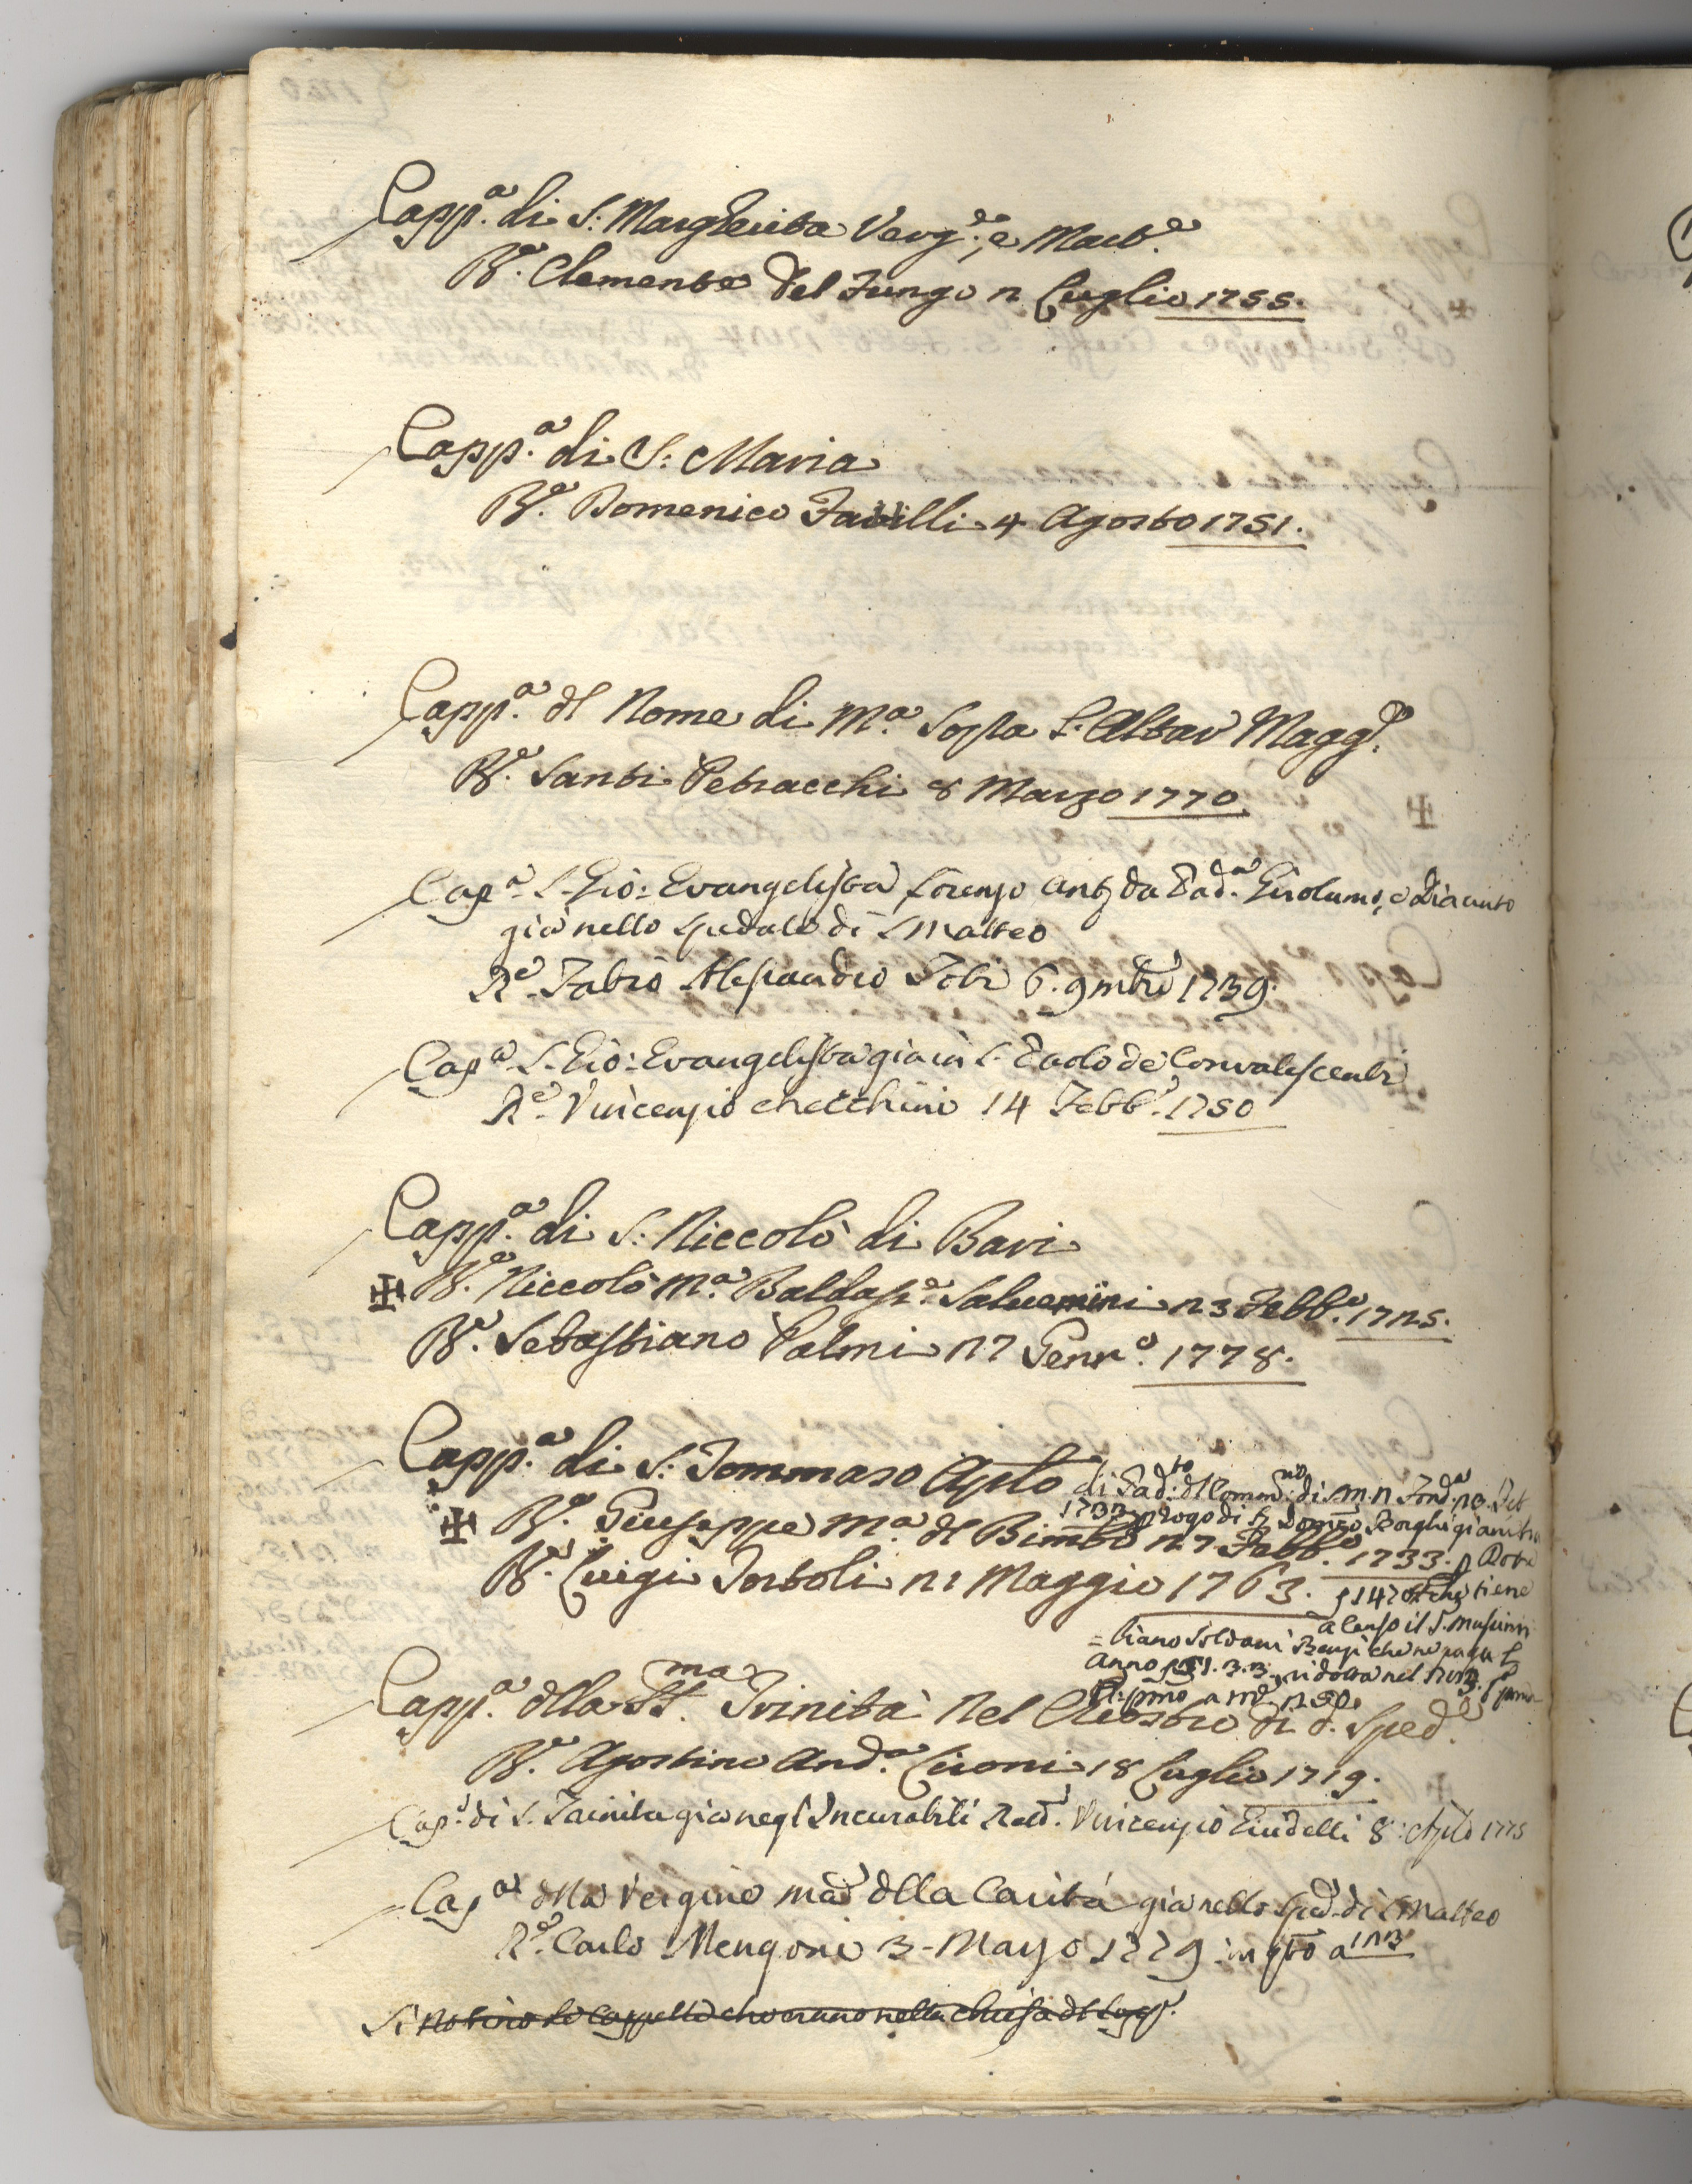 Capp.a di S: Margherita Verg.e, e Mart.e
R.e Clemente Del Fungo 2 Luglio 1755.
Capp.a di S: Maria
R.e Domenico Favilli 4 Agosto 1751.
Capp.a dl Nome di M.a Sopra l'Altar Magg.re
R.e Santi Petracchi 8 Marzo 1770.
Cap.a S. Gio: Evangelista Lorenzo da Pad.a Girolamo, e
già nello Spedale di S Matteo
R.e Fabio Alessandro 6. 9mbre 1739.
Cap.a S. Gio: Evangelista già in S. Paolo de Convalescenti
R.e Vincenzio Checchini 14 Febb.o 1750
Capp.a di S: Niccolò di Bari
R.e Niccolò M.a Baldass.e Salvemini 23 Febb.o 1725.
R.e Sebastiano Palmi 27 Genn.o 1778.
Capp.a di S: Tommaso Aplo di Pad.to dl Comm.rio di S.M.N.
1733 rogo di Domco Borghigiani
R.e Giuseppe M.a dl Bimbo 27 Febb.o 1733.
R.e Luigi Tortoli 21 Maggio 1763. tiene
a Censo il S.
Soldani Benzi che ne paga
anno ridotta nel
Capp.a dlla SS.ma Trinità Nel Chiostro di d. Sped.e
R.e Agostino And.a Cironi 18 Luglio 1719.
Cap.a di S. Trinita già negl'Incurabili Rett.e Vincenzio 8 Aple 1775
Cap.a dlla Vergine Mad.e dlla Carità già nello Sped. di S Matteo
R.e Carlo Mengoni 3 Marzo 1779 in qto a 123
Si notino le Cappelle che erano nella Chiesa dl